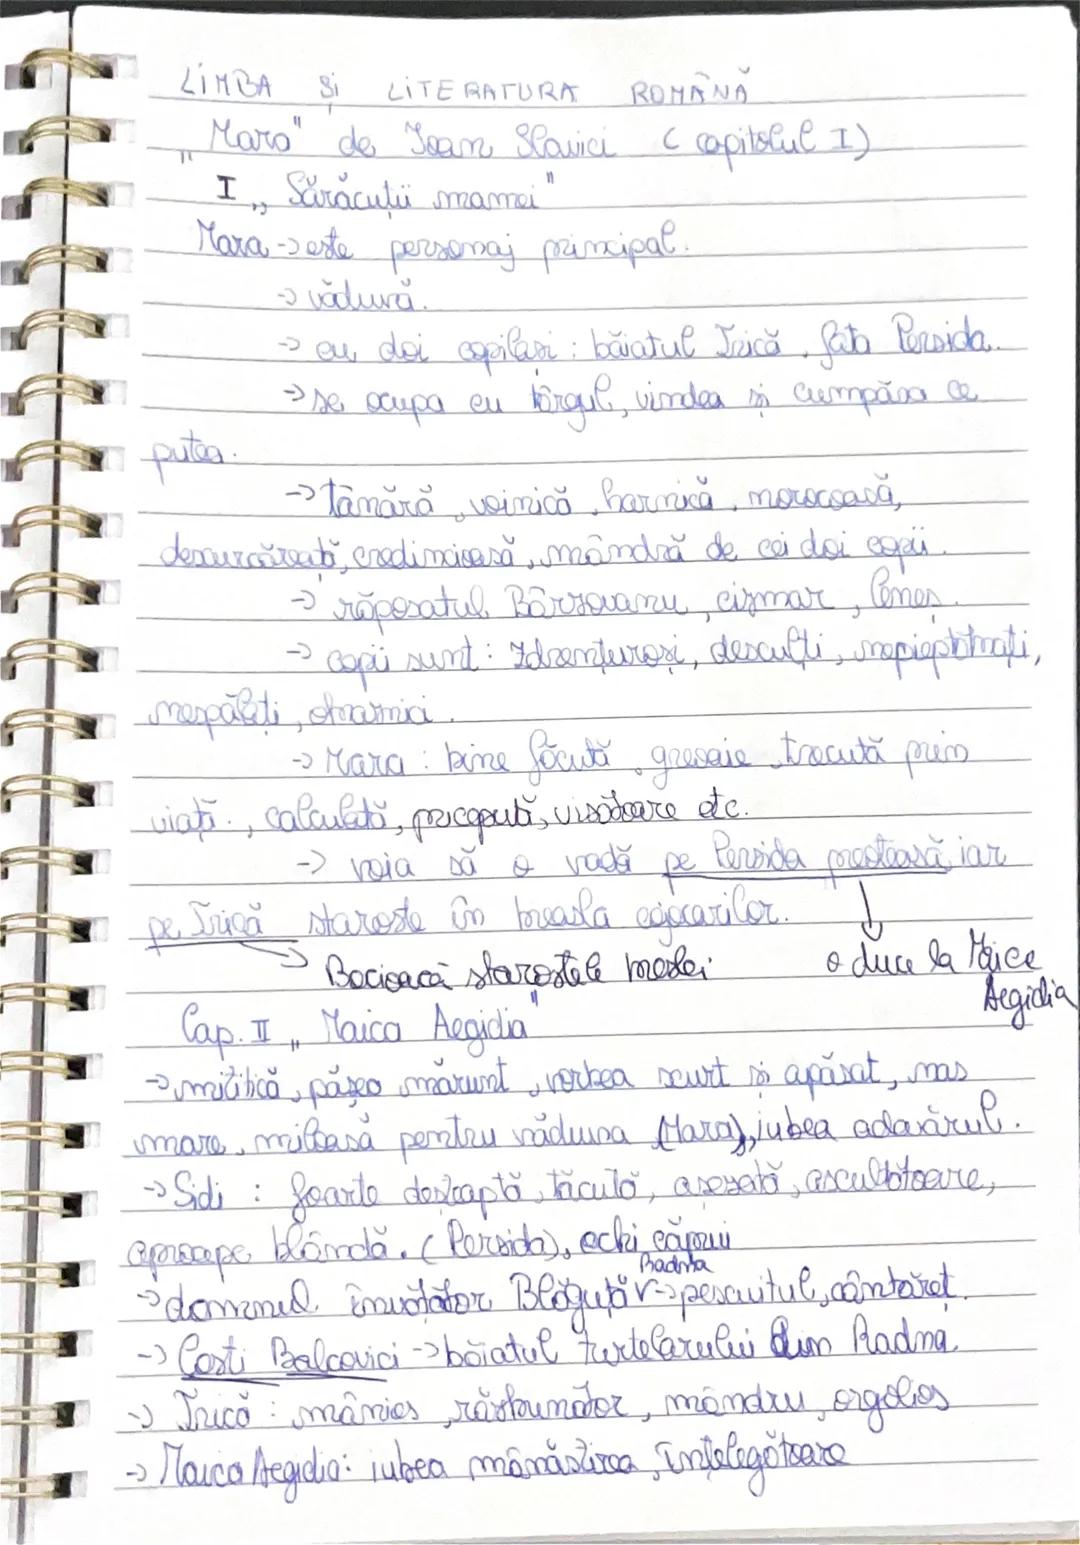 LIMBA și LITERATURA ROMÂNĂ
„Mara" de Ioan Slavici (capitolul I)
I „Sărăcuții mamei"
Mara -> este personaj principal.
-> văduvă.
-> cu doi copilași: băiatul Trică, fata Persida.
-> se ocupa cu târgul, vindea și cumpăra ce
putea.
-> tânără, voinică, harnică, norocoasă,
descurcăreată, credincioasă, mândră de cei doi copii.
-> răposatul Bârzovanu, cizmar, leneș.
-> copii sunt: zdrențuroși, desculți, nepieptănați,
nespălați, obraznici.
-> Mara: bine făcută, greoaie, trecută prin
viață., calculată, pricepută, visătoare etc.
-> voia să o vadă pe Persida preoteasă iar
pe Trică staroste în breasla cojocarilor.
-> Bocioacă starostele breslei
o duce la Maica
Aegidia
Cap. II „Maica Aegidia"
-> mititică, pășea mărunt, vorbea scurt și apăsat, nas
mare, miloasă pentru văduva (Mara), iubea adevărul.
-> Sidi: foarte deșteaptă, tăcută, așezată, ascultătoare,
aproape blândă. (Persida), ochi căprui
Radna
-> domnul învățător Blăguță -> pescuitul, cântăreț.
-> Costi Balcovici -> băiatul turtelarului din Radna
-> Trică: mânios, răzbunător, mândru, orgolios
-> Maica Aegidia: iubea mănăstirea, înțelegătoare